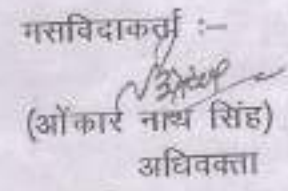 मसविदाकर्ता :—
(ओंकार नाथ सिंह)
अधिवक्ता